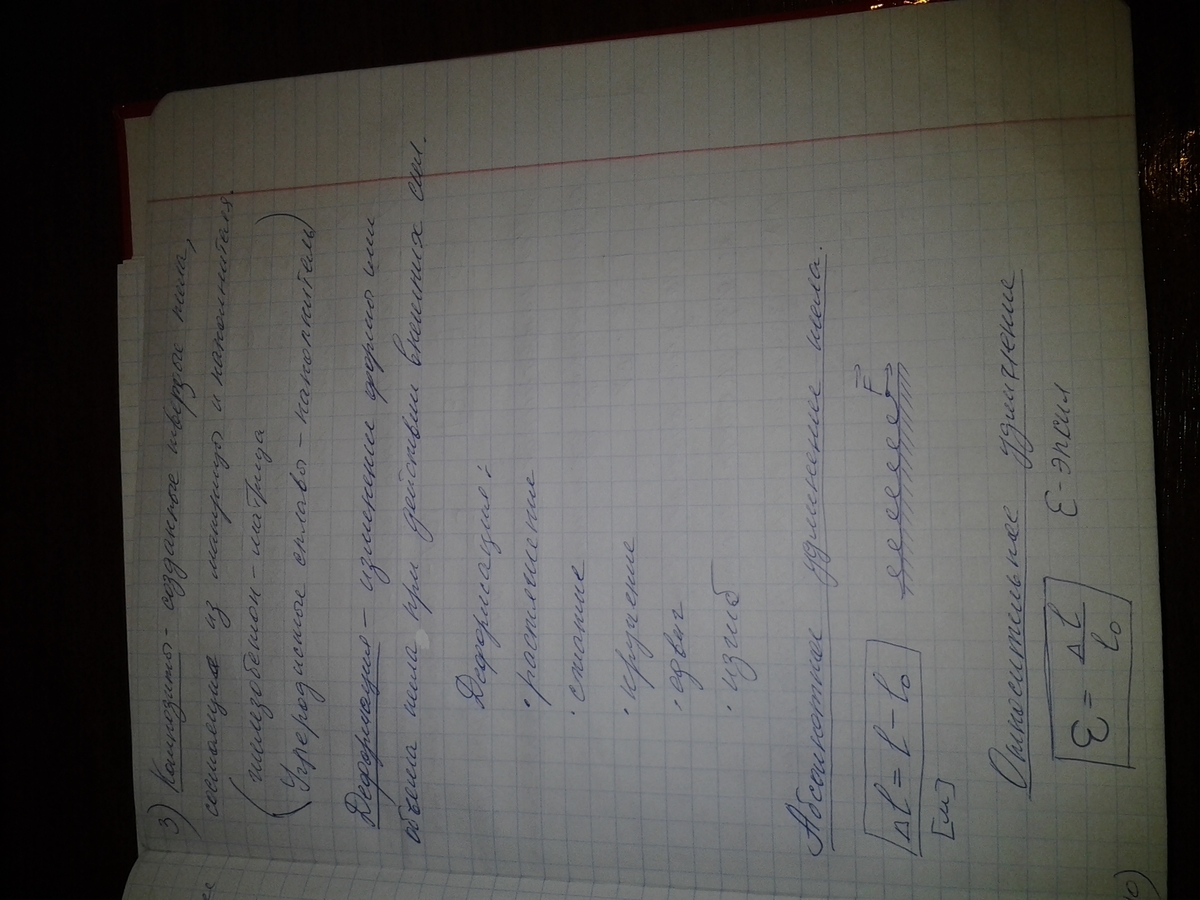 3) Композиты - созданные твёрдые тела,
состоящие из матрицы и наполнителя.
(железобетон - матрица
Углеродистые сплавы - наполнитель)
Деформация - изменение формы или
объёма тела при действии внешних сил.
Деформация:
· растяжение
· сжатие
· кручение
· сдвиг
· изгиб
Абсолютное удлинение тела.
Δl = l - l₀
F
[м]
Относительное удлинение
ε = Δl / l₀
ε - эпсил